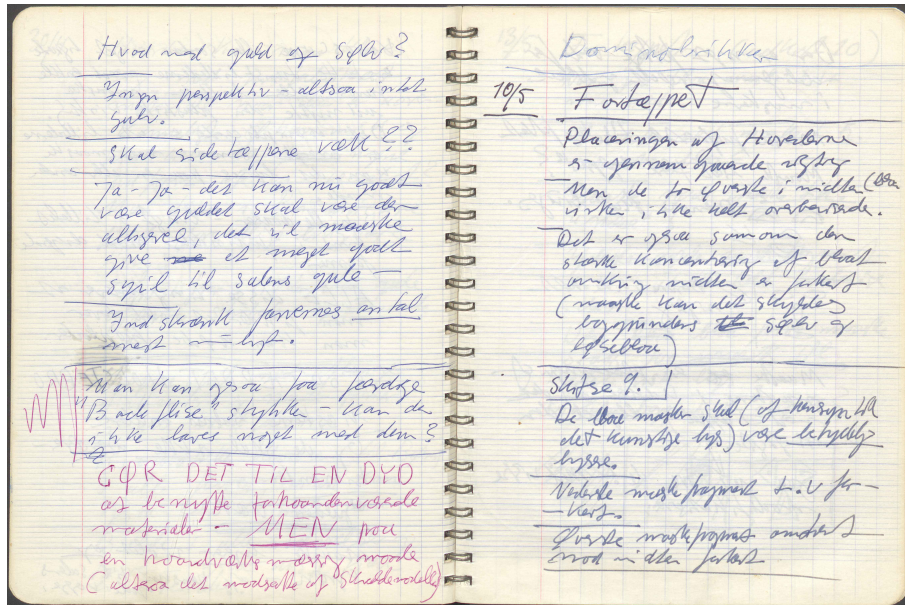 Hvad med guld og sølv?
Ingen perspektiv - altsaa intet
gulv.
Skal sidetæppene væk??
Ja - Ja - det kan nu godt
være guldet skal være der
alligevel, det vil maaske
give et meget godt
spil til salens gule -
Indskrænk farvernes antal
mest muligt.
Man kan ogsaa faa færdige
"Back flise" stykker - kan der
ikke laves noget med dem?
GØR DET TIL EN DYD
at benytte forhaandenværende
materialer - MEN paa
en haandværksmæssig maade
(altsaa det modsatte af
Dominobrikker
10/5 Fortæppet
Placeringen af Hovederne
er gennemgaaende rigtig
Men de to øverste i midten
virker ikke helt overbevisende.
Det er ogsaa som om den
stærke koncentrering af blaat
omkring midten er forkert
(maaske kan det skyldes
baggrundens sølv og
lyseblaa)
Skitse 9.
De blaa masker skal (af hensyn til
det kunstige lys) være betydelig
lysere.
Nederste maskefragment t.v for-
kert.
Øverste maskefragment
mod midten forkert